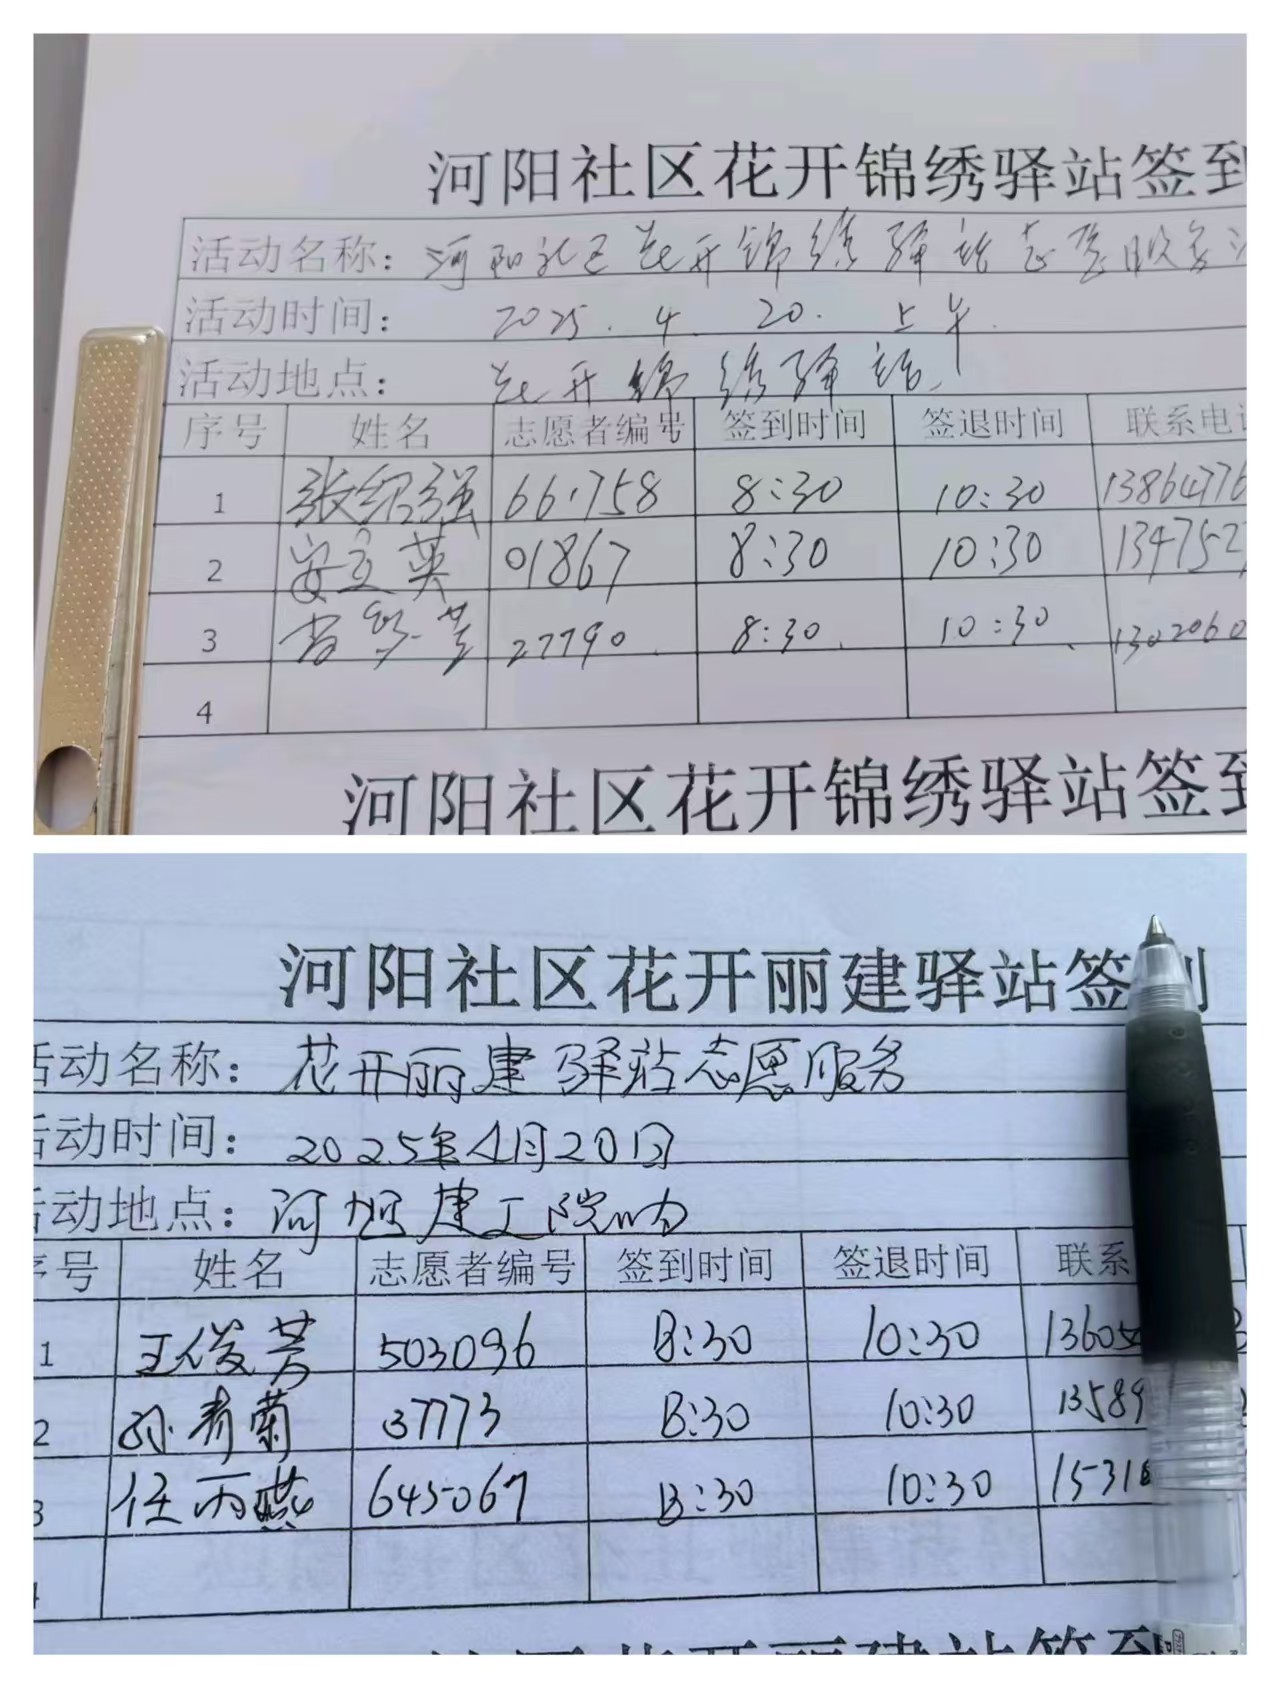 河阳社区花开锦绣驿站签到
活动名称：河阳社区花开锦绣驿站志愿服务活
活动时间：2025.4.20.上午.
活动地点：花开锦绣驿站.
序号 姓名 志愿者编号 签到时间 签退时间 联系电话
1 张绍强 661758 8:30 10:30 13864776
2 安立英 01867 8:30 10:30 1347527
3 27790. 8:30. 10:30. 1302060
4
河阳社区花开锦绣驿站签到
河阳社区花开丽建驿站签到
活动名称：花开丽建驿站志愿服务
活动时间：2025年4月20日
活动地点：河阳建工院内
序号 姓名 志愿者编号 签到时间 签退时间 联系
1 王俊芳 503096 8:30 10:30 13605
2 孙秀菊 37773 8:30 10:30 13589
3 任丙燕 645067 8:30 10:30 1531
4
社区花开丽建驿站签到